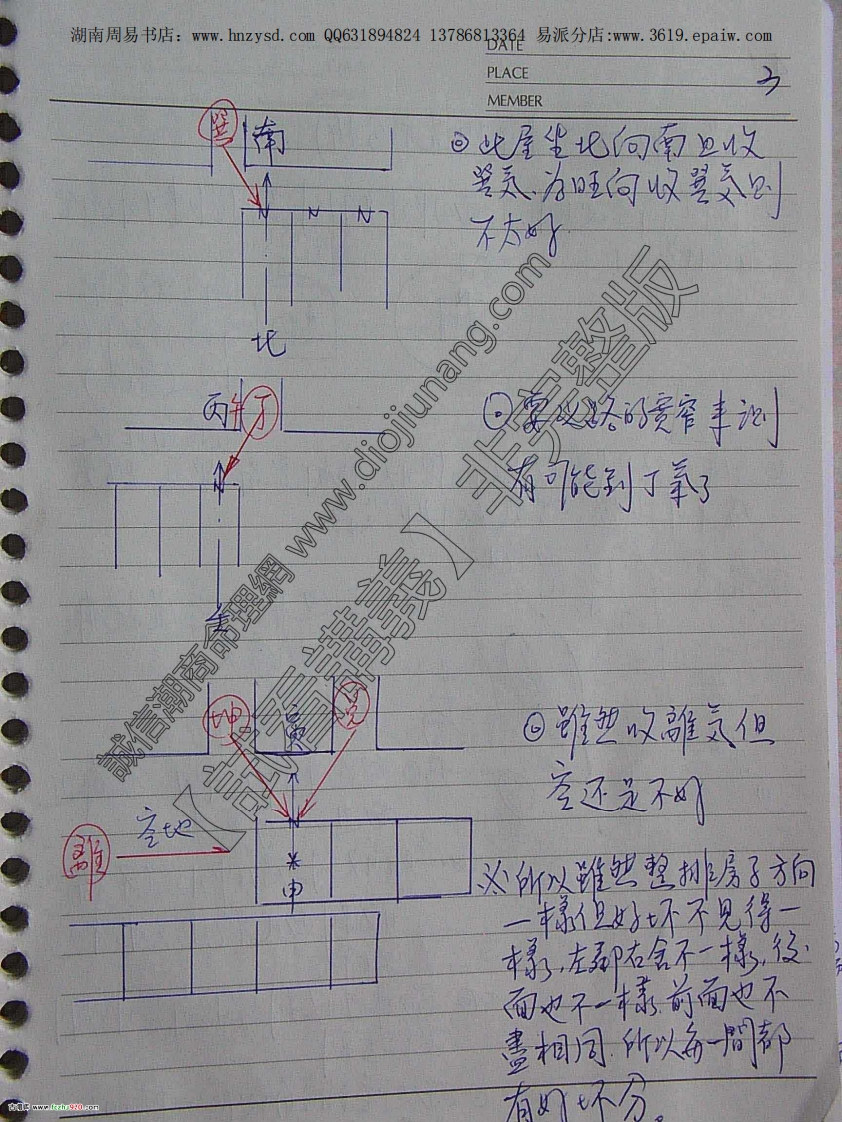 湖南周易书店：www.hnzysd.com QQ631894824 13786813364 易派分店:www.3619.epaiw.com
DATE
PLACE
3
MEMBER
巽
南
此屋坐北向南且收
巽気、为旺向收巽気则
不太好
北
丙午丁
要以路的宽窄来识
有可能到丁氣了
坤
寅
兑
雖然收離気但
空还是不好
空地
離
申
所以雖然整排房子方向
一樣但好坏不見得一
樣，左邻右舍不一樣，後
面也不一樣，前面也不
盡相同，所以每一間都
有好坏分。
誠信潮商命理網 www.diojiunang.com
【試看講義】 非完整版
古籍库 www.fozhu920.com